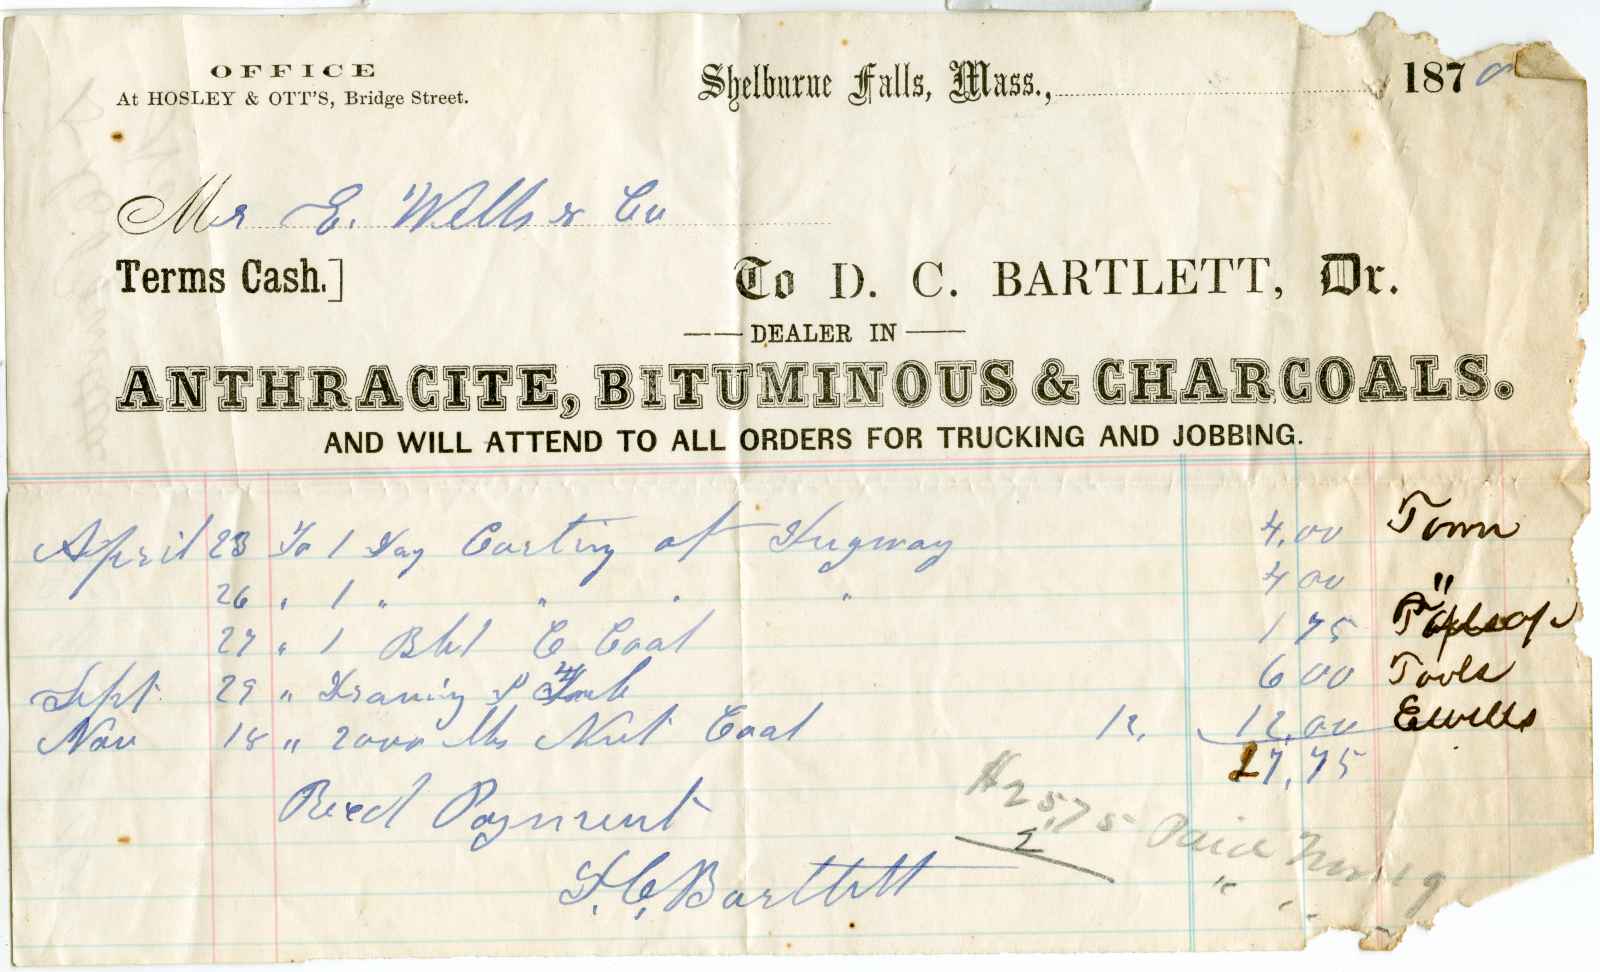 OFFICE
At HOSLEY & OTT'S, Bridge Street.
Shelburne Falls, Mass., 1870
Mr E. Wells & Co
Terms Cash.] To D. C. BARTLETT, Dr.
DEALER IN
ANTHRACITE, BITUMINOUS & CHARCOALS.
AND WILL ATTEND TO ALL ORDERS FOR TRUCKING AND JOBBING.
April 23 To 1 Day Carting at Hugway 4,00 Town
26 " 1 " " " " 4 00 "
27 " 1 Bbl C Coal 1 75
Sept 29 " 6 00 Tools
Nov 18 " 2000 lbs Nut Coal 12. 12.00 E Wells
27.75
Recd Payment
D. C. Bartlett
25.75 Paid
2 "